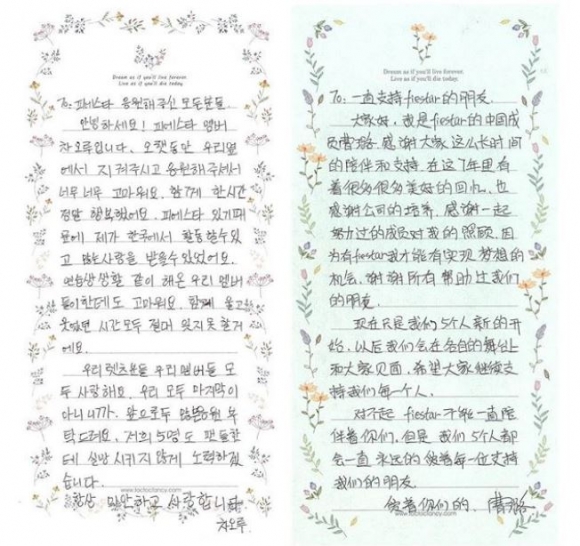 Dream as if you'll live forever.
Live as if you'll die today.
To: 피에스타 응원해주신 모든분들
안녕하세요! 피에스타 멤버
차오루입니다. 오랫동안 우리옆
에서 지켜주시고 응원해주셔서
너무너무 고마워요. 함께 한시간
정말 행복했어요. 피에스타 있기때
문에 제가 한국에서 활동할수있
고 많은사랑을 받을수있었어요.
연습생생활 같이 해온 우리 멤버
들이한테도 고마워요. 함께 울고
웃었던 시간모두 절대 잊지못할거
에요.
우리렛츠분들 우리멤버들 모
두 사랑해요. 우리 모두 마지막이
아니니까. 앞으로두 많은응원 부
탁드려요. 저희 5명도 팬들한
테 실망시키지 않게 노력하겠
습니다.
항상 미안하고 사랑합니다
차오루.
www.toctoctancy.com
Dream as if you'll live forever.
Live as if you'll die today.
To: 一直支持fiestar的朋友.
大家好, 我是fiestar的中国成
员曹璐. 感谢大家这么长时间
的陪伴和支持. 在这7年里有
着很多很多美好的回忆. 也
感谢公司的培养. 感谢一起
努力过的成员对我的照顾. 因
为有fiestar我才能有实现梦想的
机会. 谢谢所有帮助过我们
的朋友.
现在只是我们5个人新的开
始. 以后我们会在各自的舞台上
和大家见面. 希望大家继续支
持我们每一个人.
对不起 fiestar不能一直陪
伴着你们. 但是 我们5个人都
会一直 永远的 爱着每一位支持
我们的朋友
爱着你们的. 曹璐
www.toctoctancy.com